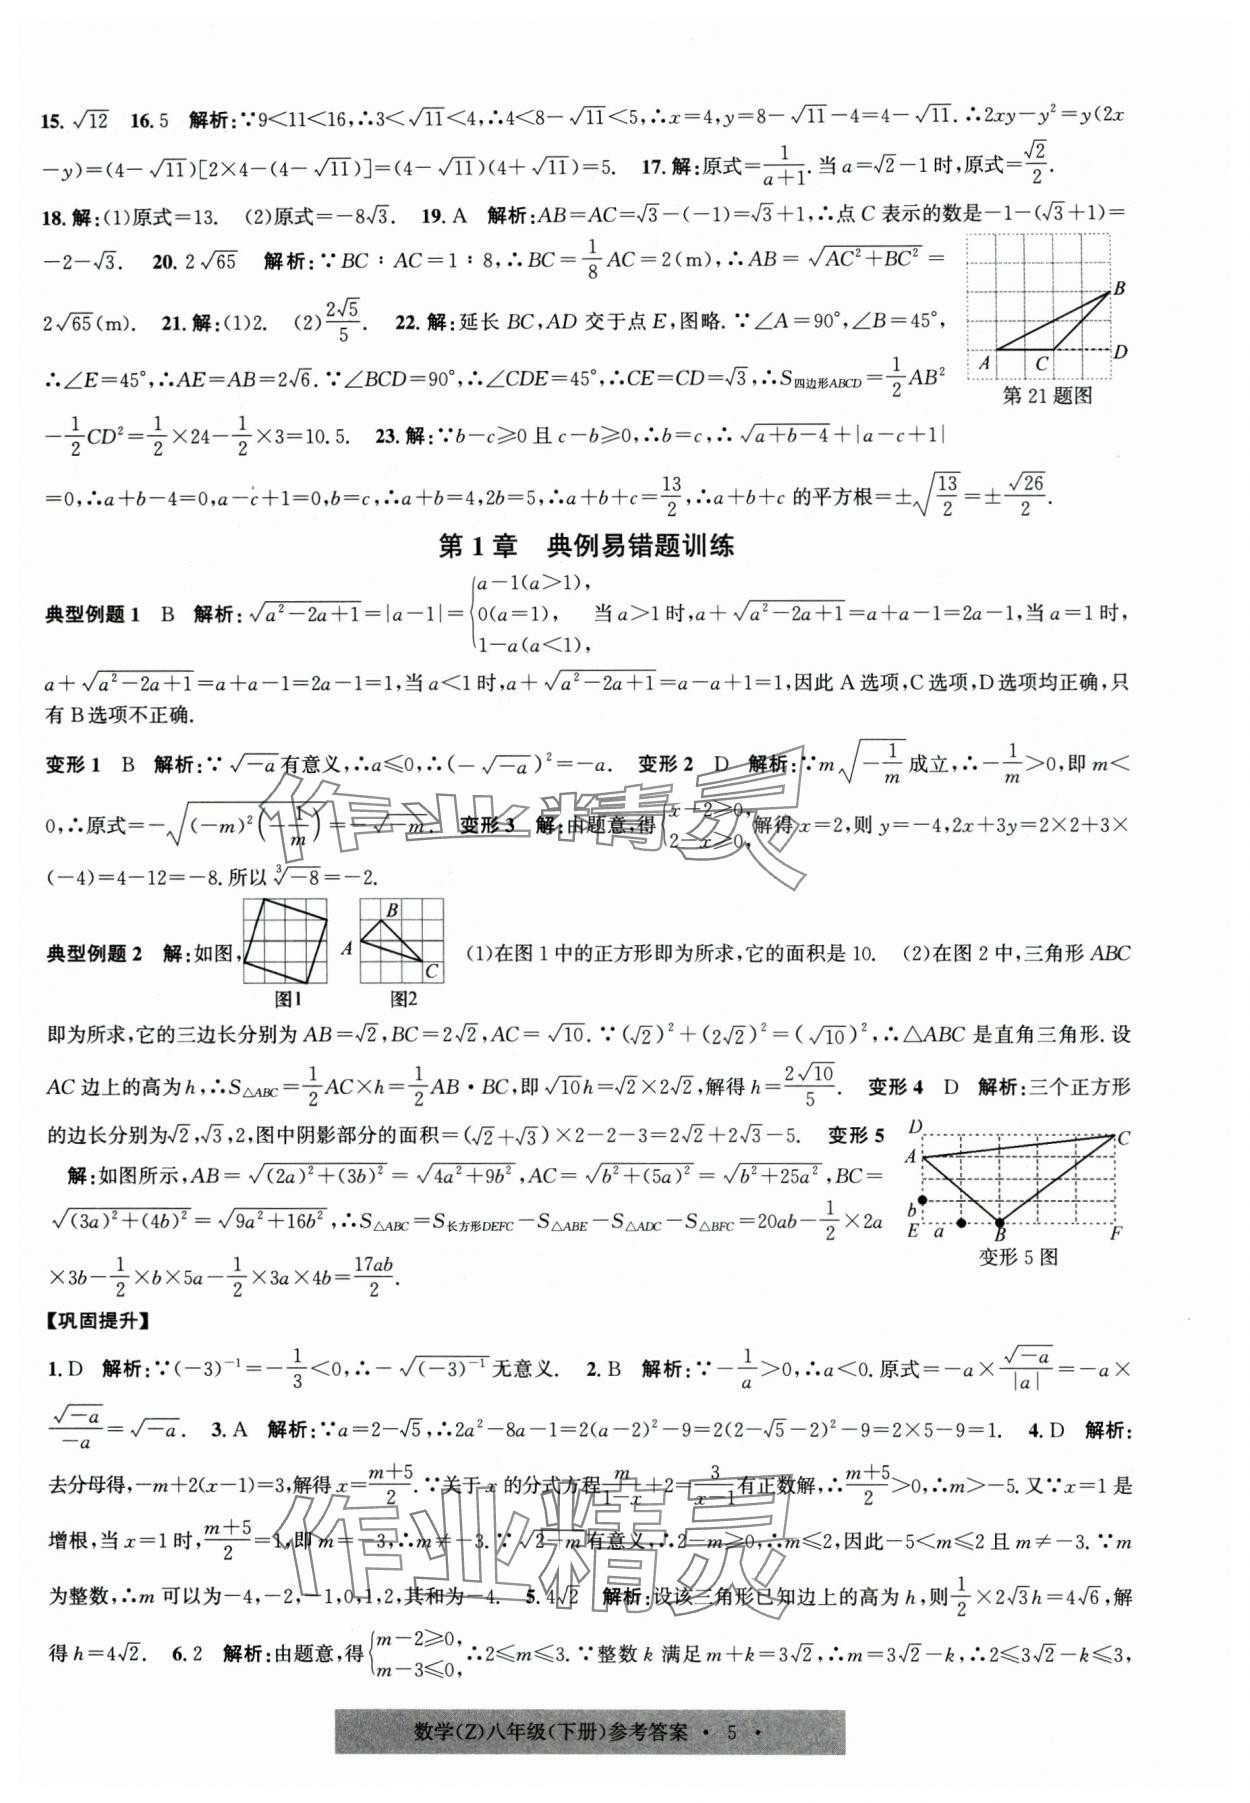 15. √12　16. 5　解析:∵9<11<16,∴3<√11<4,∴4<8-√11<5,∴x=4,y=8-√11-4=4-√11.∴2xy-y²=y(2x
-y)=(4-√11)[2×4-(4-√11)]=(4-√11)(4+√11)=5.　17. 解:原式=1/(a+1).当a=√2-1时,原式=√2/2.
18. 解:(1)原式=13.　(2)原式=-8√3.　19. A　解析:AB=AC=√3-(-1)=√3+1,∴点C表示的数是-1-(√3+1)=
-2-√3.　20. 2√65　解析:∵BC∶AC=1∶8,∴BC=1/8 AC=2(m),∴AB=√(AC²+BC²)=
2√65(m).　21. 解:(1)2.　(2)2√5/5.　22. 解:延长BC,AD交于点E,图略.∵∠A=90°,∠B=45°,
∴∠E=45°,∴AE=AB=2√6.∵∠BCD=90°,∴∠CDE=45°,∴CE=CD=√3,∴S四边形ABCD=1/2 AB²
-1/2 CD²=1/2×24-1/2×3=10.5.　23. 解:∵b-c≥0且c-b≥0,∴b=c,∴√(a+b-4)+|a-c+1|
=0,∴a+b-4=0,a-c+1=0,b=c,∴a+b=4,2b=5,∴a+b+c=13/2,∴a+b+c的平方根=±√(13/2)=±√26/2.
A
B
C
D
第21题图
第1章　典例易错题训练
典型例题1　B　解析:√(a²-2a+1)=|a-1|={a-1(a>1),0(a=1),1-a(a<1),　当a>1时,a+√(a²-2a+1)=a+a-1=2a-1,当a=1时,
a+√(a²-2a+1)=a+a-1=2a-1=1,当a<1时,a+√(a²-2a+1)=a-a+1=1,因此A选项,C选项,D选项均正确,只
有B选项不正确.
变形1　B　解析:∵√(-a)有意义,∴a≤0,∴(-√(-a))²=-a.　变形2　D　解析:∵m√(-1/m)成立,∴-1/m>0,即m<
0,∴原式=-√((-m)²(-1/m))=-√(-m).　变形3　解:由题意,得{x-2≥0,2-x≥0,解得x=2,则y=-4,2x+3y=2×2+3×
(-4)=4-12=-8.所以∛(-8)=-2.
典型例题2　解:如图,　(1)在图1中的正方形即为所求,它的面积是10.　(2)在图2中,三角形ABC
A
B
C
图1　图2
即为所求,它的三边长分别为AB=√2,BC=2√2,AC=√10.∵(√2)²+(2√2)²=(√10)²,∴△ABC是直角三角形.设
AC边上的高为h,∴S△ABC=1/2 AC×h=1/2 AB·BC,即√10h=√2×2√2,解得h=2√10/5.　变形4　D　解析:三个正方形
的边长分别为√2,√3,2,图中阴影部分的面积=(√2+√3)×2-2-3=2√2+2√3-5.　变形5
解:如图所示,AB=√((2a)²+(3b)²)=√(4a²+9b²),AC=√(b²+(5a)²)=√(b²+25a²),BC=
√((3a)²+(4b)²)=√(9a²+16b²),∴S△ABC=S长方形DEFC-S△ABE-S△ADC-S△BFC=20ab-1/2×2a
×3b-1/2×b×5a-1/2×3a×4b=17ab/2.
D
C
A
b
E　a　B　F
变形5图
【巩固提升】
1. D　解析:∵(-3)⁻¹=-1/3<0,∴-√((-3)⁻¹)无意义.　2. B　解析:∵-1/a>0,∴a<0.原式=-a×√(-a)/|a|=-a×
√(-a)/(-a)=√(-a).　3. A　解析:∵a=2-√5,∴2a²-8a-1=2(a-2)²-9=2(2-√5-2)²-9=2×5-9=1.　4. D　解析:
去分母得,-m+2(x-1)=3,解得x=(m+5)/2.∵关于x的分式方程m/(1-x)+2=3/(x-1)有正数解,∴(m+5)/2>0,∴m>-5.又∵x=1是
增根,当x=1时,(m+5)/2=1,即m=-3,∴m≠-3.∵√(2-m)有意义,∴2-m≥0,∴m≤2,因此-5<m≤2且m≠-3.∵m
为整数,∴m可以为-4,-2,-1,0,1,2,其和为-4.　5. 4√2　解析:设该三角形已知边上的高为h,则1/2×2√3h=4√6,解
得h=4√2.　6. 2　解析:由题意,得{m-2≥0,m-3≤0,∴2≤m≤3.∵整数k满足m+k=3√2,∴m=3√2-k,∴2≤3√2-k≤3,
作业精灵
作业精灵
数学(Z)八年级(下册)参考答案 · 5 ·